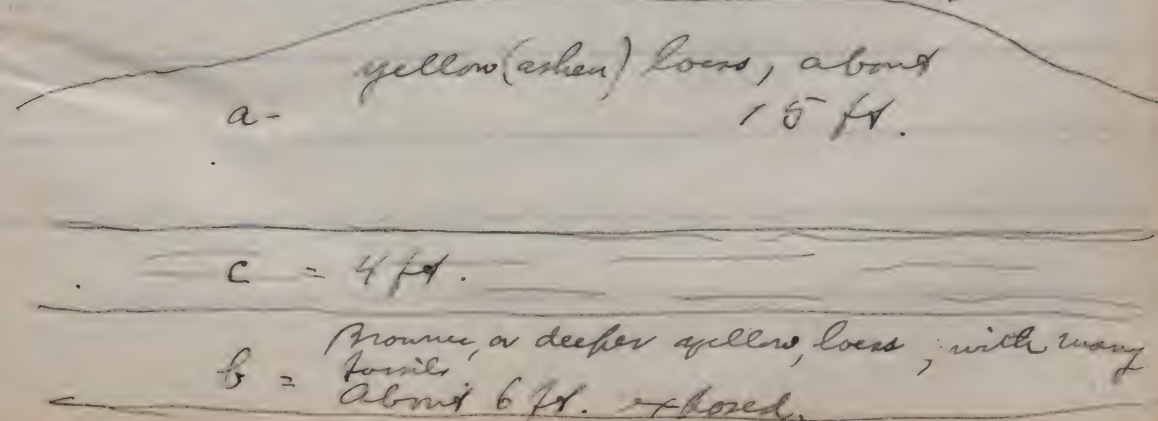 yellow (ashen) loess, about
a - 15 ft.
c = 4 ft.
Browner, or deeper yellow, loess, with many
b = fossils
About 6 ft. exposed.